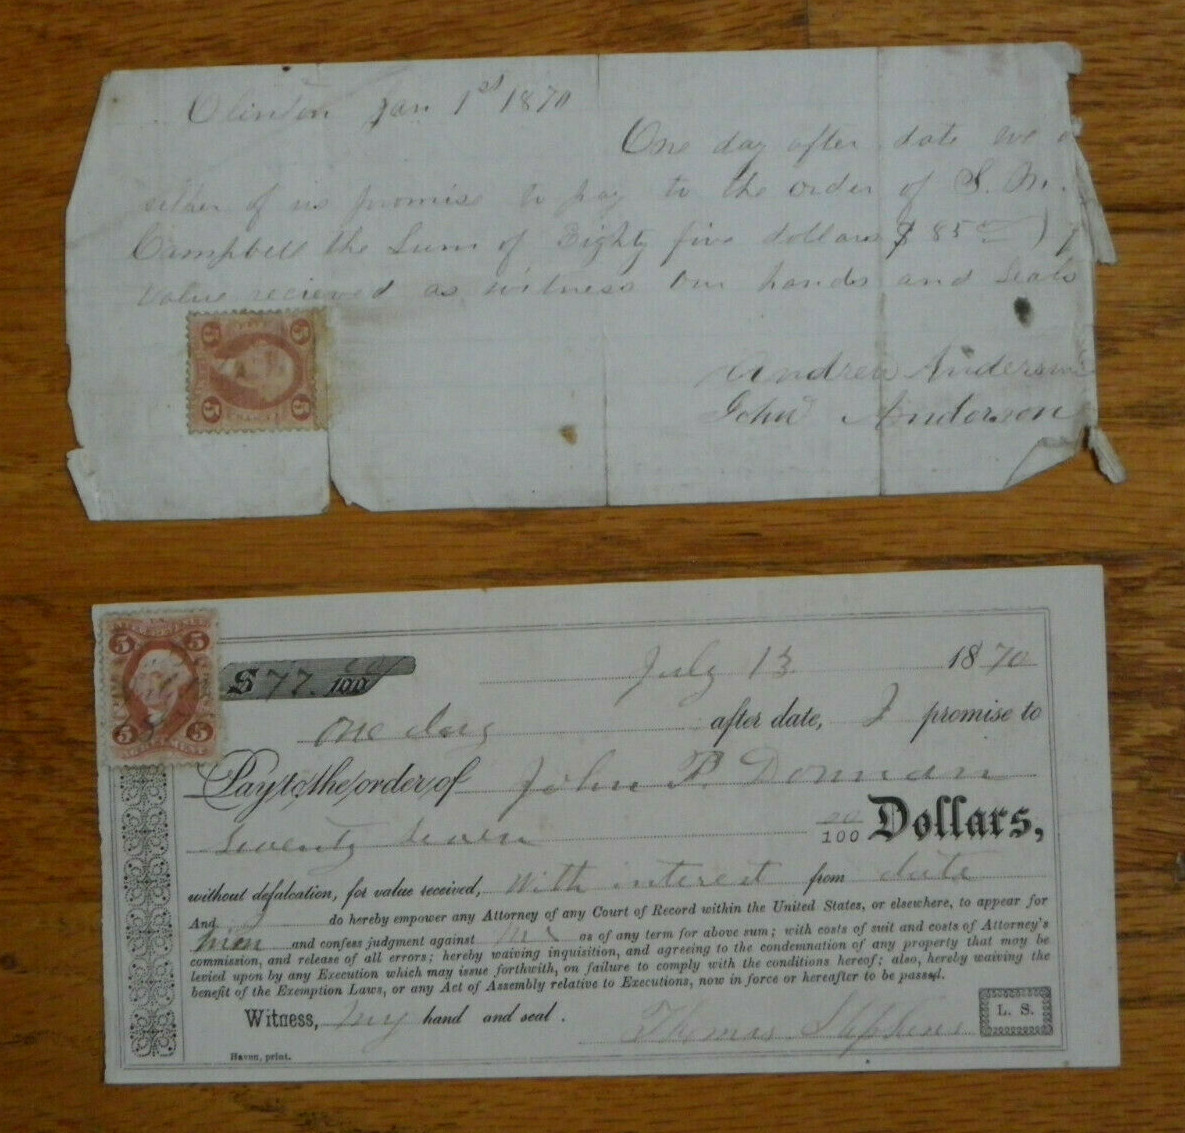 Clinton Jan 1st 1870
One day after date we or
either of us promise to pay to the order of S. M.
Campbell the Sum of Eighty five dollars $ 85 00 )
value recieved as witness our hands and Seals
5 5
5 5
Andrew Anderson
John Anderson
5 5
5 5
$ 77. 00/100
July 13 1870
one day after date, I promise to
Pay to the order of John P. Donnan
Seventy Seven 00/100 Dollars,
without defalcation, for value received, With interest from date
And do hereby empower any Attorney of any Court of Record within the United States, or elsewhere, to appear for
him and confess judgment against me as of any term for above sum; with costs of suit and costs of Attorney's
commission, and release of all errors; hereby waiving inquisition, and agreeing to the condemnation of any property that may be
levied upon by any Execution which may issue forthwith, on failure to comply with the conditions hereof; also, hereby waiving the
benefit of the Exemption Laws, or any Act of Assembly relative to Executions, now in force or hereafter to be passed.
Witness, my hand and seal. Thomas Stephens L. S.
Haven, print.